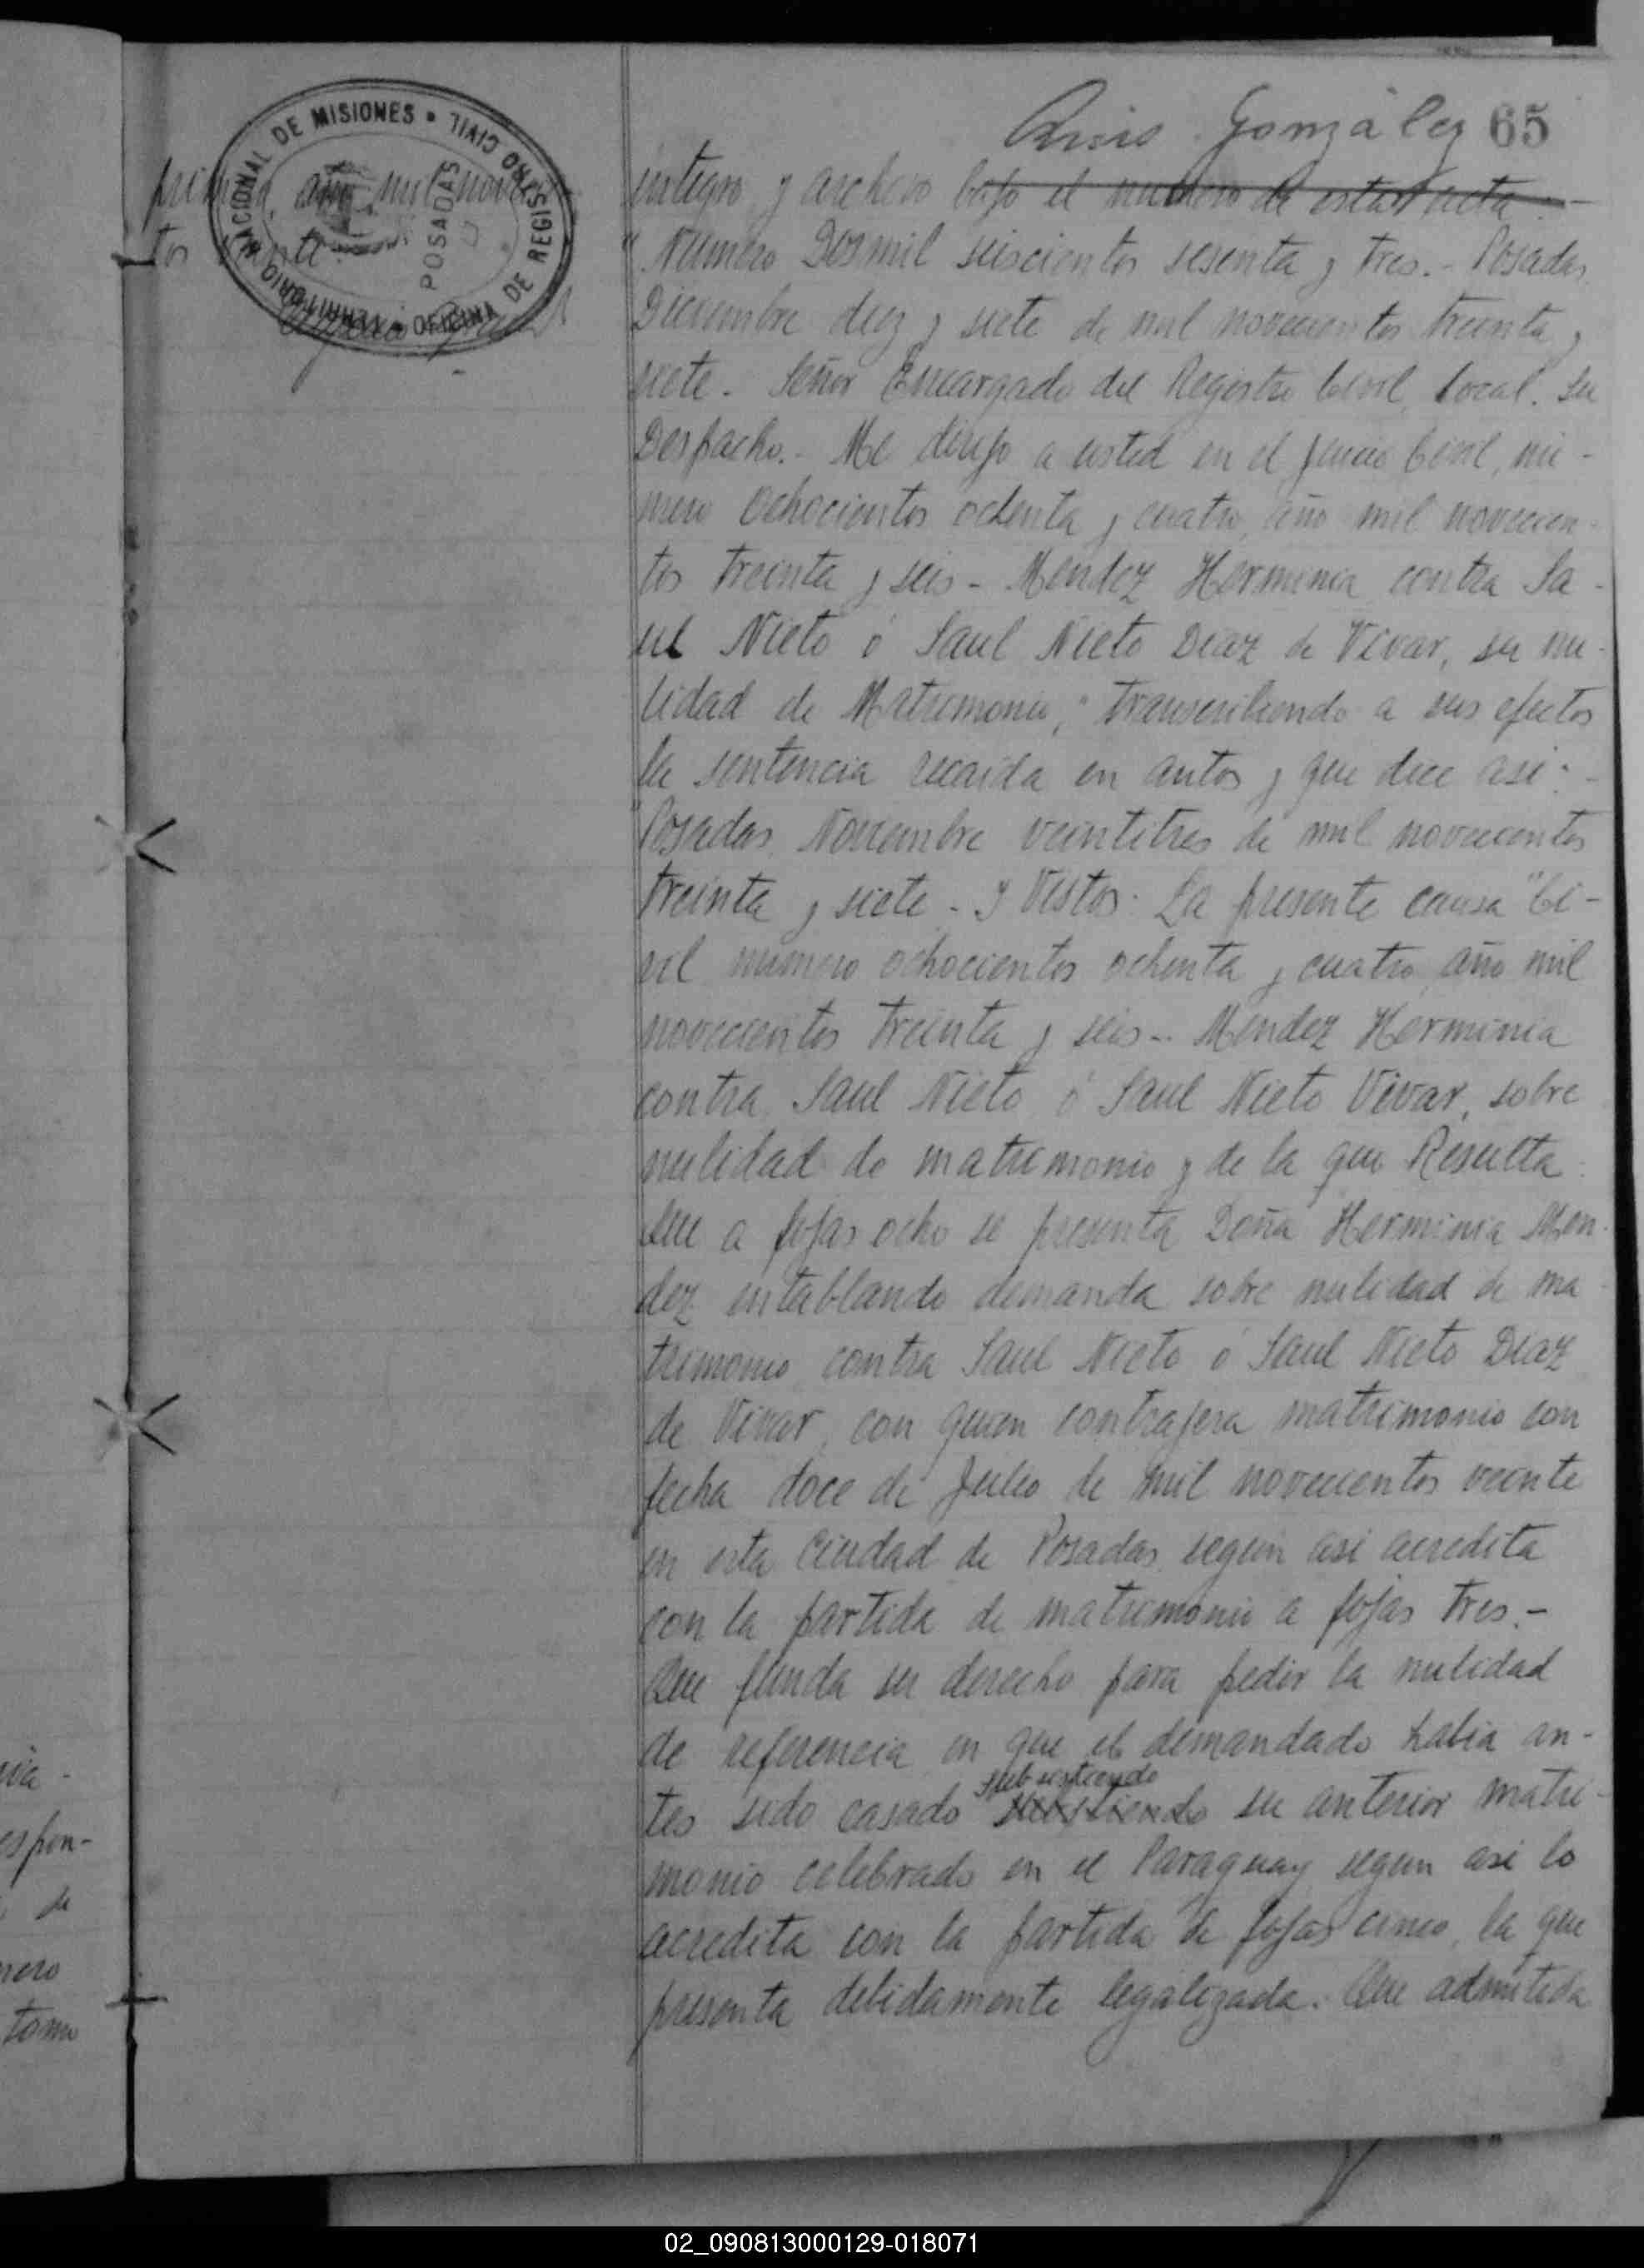 González 65
TERRITORIO NACIONAL DE MISIONES • OFICINA DE REGISTRO CIVIL
POSADAS
primera, año mil novecien
tos
integro y archivo bajo el numero de esta acta.-
"Numero Dosmil seiscientos sesenta y tres.- Posadas,
Diciembre diez y siete de mil novecientos treinta y
siete.- Señor Encargado del Registro Civil, local. Su
Despacho.- Me dirijo a usted en el juicio Civil, nú-
mero ochocientos ochenta y cuatro, año mil novecien-
tos treinta y seis - Mendez Herminia contra Sa-
ul Nieto ó Saul Nieto Diaz de Vivar, su nu-
lidad de Matrimonio," transcribiendo a sus efectos
la sentencia recaida en autos y que dice asi:-
"Posadas, Noviembre veintitres de mil novecientos
treinta y siete.- Y Vistos: La presente causa "Ci-
vil numero ochocientos ochenta y cuatro, año mil
novecientos treinta y seis.- Mendez Herminia
contra Saul Nieto ó Saul Nieto Vivar, sobre
nulidad de matrimonio y de la que Resulta:
Que a fojas ocho se presenta Doña Herminia Men-
dez entablando demanda sobre nulidad de ma-
trimonio contra Saul Nieto ó Saul Nieto Diaz
de Vivar, con quien contrajera matrimonio con
fecha doce de Julio de mil novecientos veinte
en esta Ciudad de Posadas, según asi acredita
con la partida de matrimonio a fojas tres.-
Que funda su derecho para pedir la nulidad
de referencia en que el demandado habia an-
subsistiendo
tes sido casado su anterior matri-
monio celebrado en el Paraguay segun asi lo
acredita con la partida de fojas cinco, la que
presenta debidamente legalizada. Que admitida
via -
espon-
de
mero
tomo
02_090813000129-018071